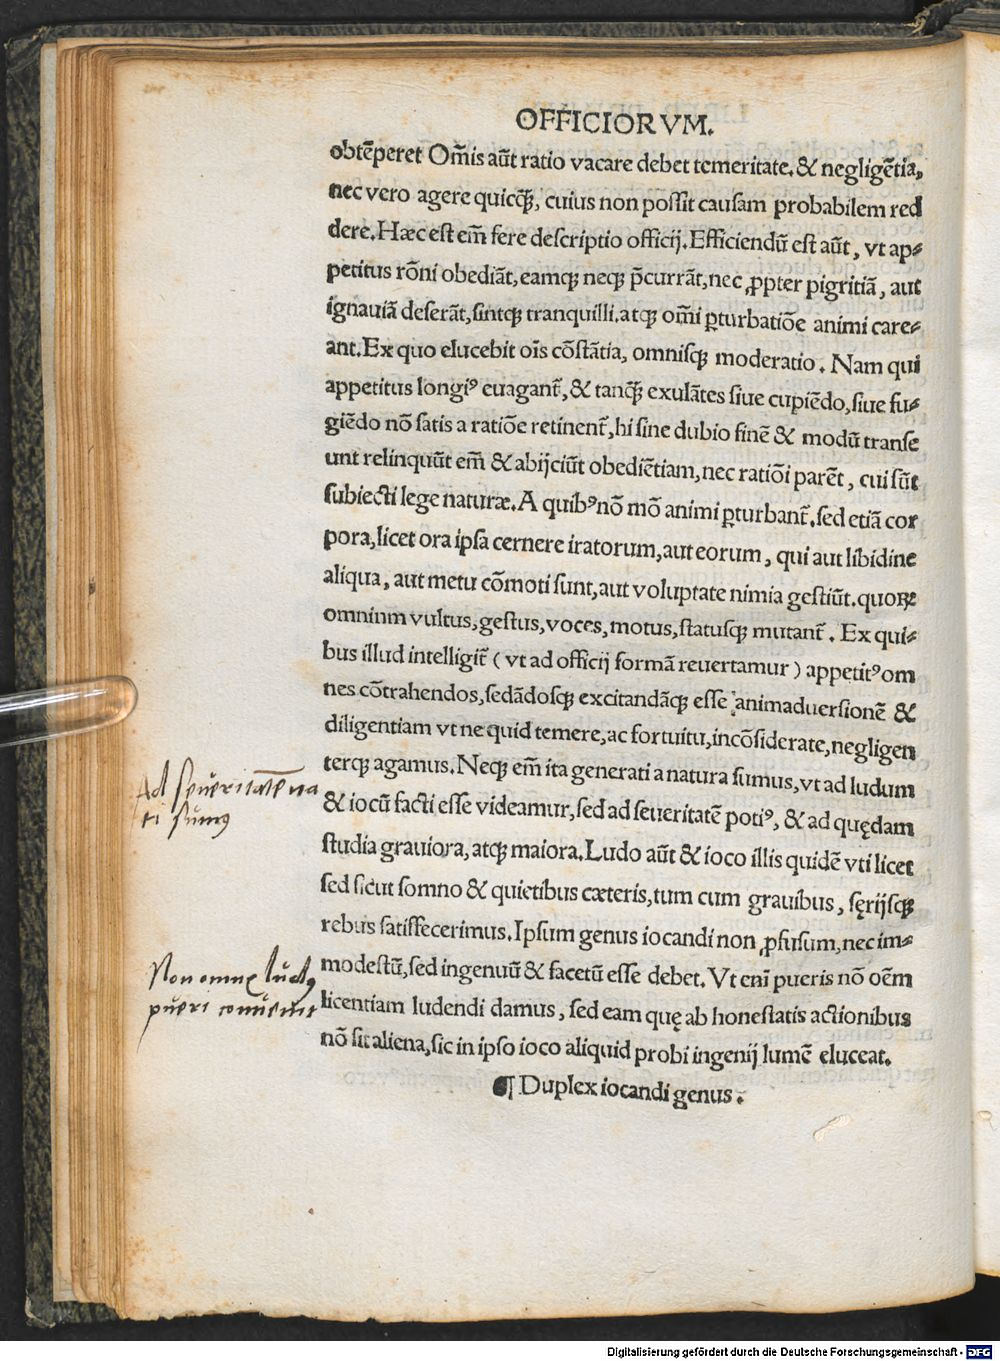 OFFICIORVM.
obtēperet Om̄is aūt ratio vacare debet temeritate. & negligētia,
nec vero agere quicꝗ̄, cuius non possit causam probabilem red
dere. Hæc est em̄ fere descriptio officij. Efficiendū est aūt, vt ap⸗
petitus rōni obediāt, eamqꝫ neqꝫ p̄currāt, nec ꝓpter pigritiā, aut
ignauiā deserāt, sintqꝫ tranquilli. atqꝫ om̄i ꝑturbatiōe animi care⸗
ant. Ex quo elucebit oīs cōstātia, omnisqꝫ moderatio. Nam qui
appetitus longiꝰ euagant᷑, & tanꝗ̄ exulātes siue cupiēdo, siue fu⸗
giēdo nō satis a ratiōe retinent᷑, hi sine dubio finē & modū transe
unt relinquūt em̄ & abijciūt obediētiam, nec ratiōi parēt, cui sūt
subiecti lege naturæ. A quibꝰ nō mō animi ꝑturbant᷑. sed etiā cor
pora, licet ora ipsa cernere iratorum, aut eorum, qui aut libidine
aliqua, aut metu cōmoti sunt, aut voluptate nimia gestiūt. quoꝝ
omninm vultus, gestus, voces, motus, statusqꝫ mutant᷑. Ex qui⸗
bus illud intelligit᷑ (vt ad officij formā reuertamur) appetitꝰ om
nes cōtrahendos, sedādosqꝫ excitandāqꝫ esse animaduersionē &
diligentiam vt ne quid temere, ac fortuitu, incōsiderate, negligen
terqꝫ agamus. Neqꝫ em̄ ita generati a natura sumus, vt ad ludum
& iocū facti esse videamur, sed ad seueritatē potiꝰ, & ad quędam
studia grauiora, atqꝫ maiora. Ludo aūt & ioco illis quidē vti licet
sed sicut somno & quietibus cæteris, tum cum grauibus, sęrijsqꝫ
rebus satisfecerimus. Ipsum genus iocandi non ꝓfusum, nec im⸗
modestū, sed ingenuū & facetū esse debet. Vt enī pueris nō oēm
licentiam ludendi damus, sed eam quę ab honestatis actionibus
nō sit aliena, sic in ipso ioco aliquid probi ingenij lumē eluceat.
¶ Duplex iocandi genus.
Ad seueritatem na
ti sumꝰ
Non omnis ludꝰ
pueri conuenit
Digitalisierung gefördert durch die Deutsche Forschungsgemeinschaft - DFG